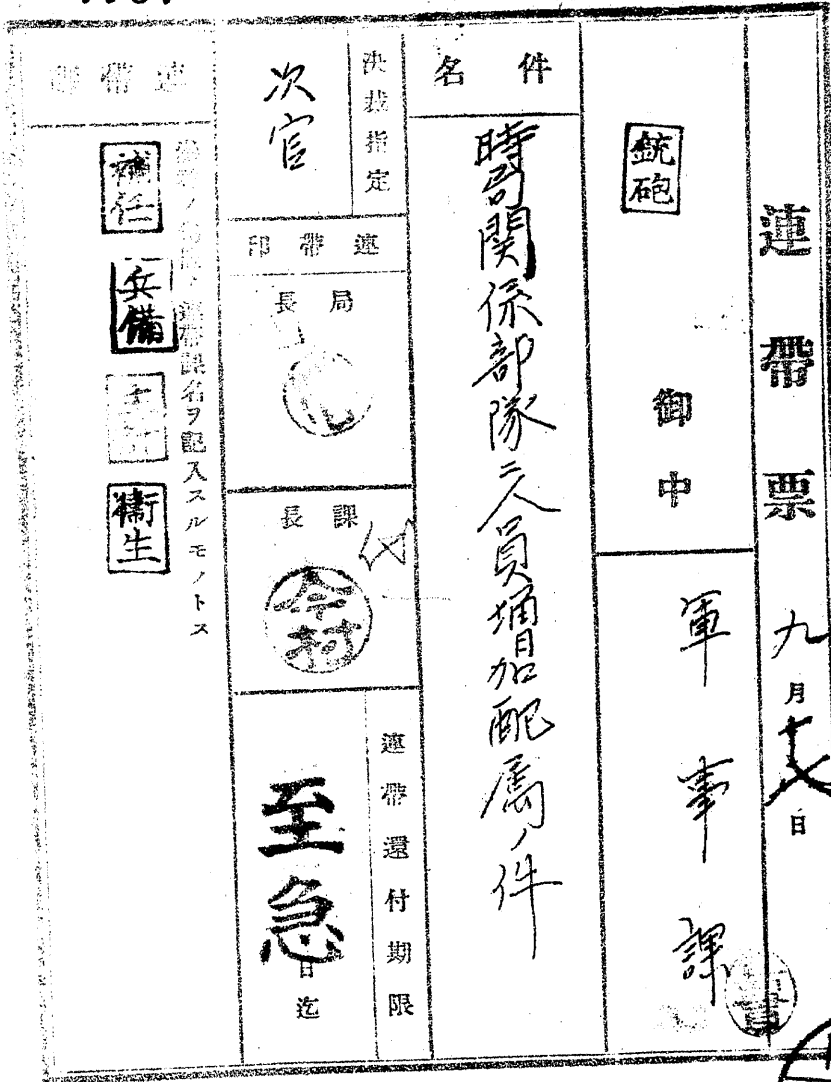 連帶票
九月十 日
銃砲
御中
軍事課
件名
時局関係部隊ニ人員増加配属ノ件
決裁指定
次官
連帶印
局長
課長
今村
連帶還付期限
至急
日迄
連帶
連帶課名ヲ記入スルモノトス
補任
兵備
衛生